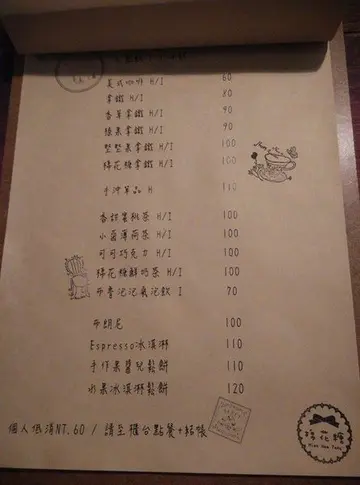 美式咖啡 H/I 60
拿鐵 H/I 80
香草拿鐵 H/I 90
榛果拿鐵 H/I 90
堅堅果拿鐵 H/I 100
棉花糖拿鐵 H/I 100
手沖單品 H 110
香甜蜜桃茶 H/I 100
小菌薄荷茶 H/I 100
可可巧克力 H/I 100
棉花糖鮮奶茶 H/I 100
布魯泡泡氣泡飲 I 70
布朗尼 100
Espresso冰淇淋 110
手作果醬兒鬆餅 110
水果冰淇淋鬆餅 120
個人低消NT.60 / 請至櫃台點餐+結帳
棉花糖